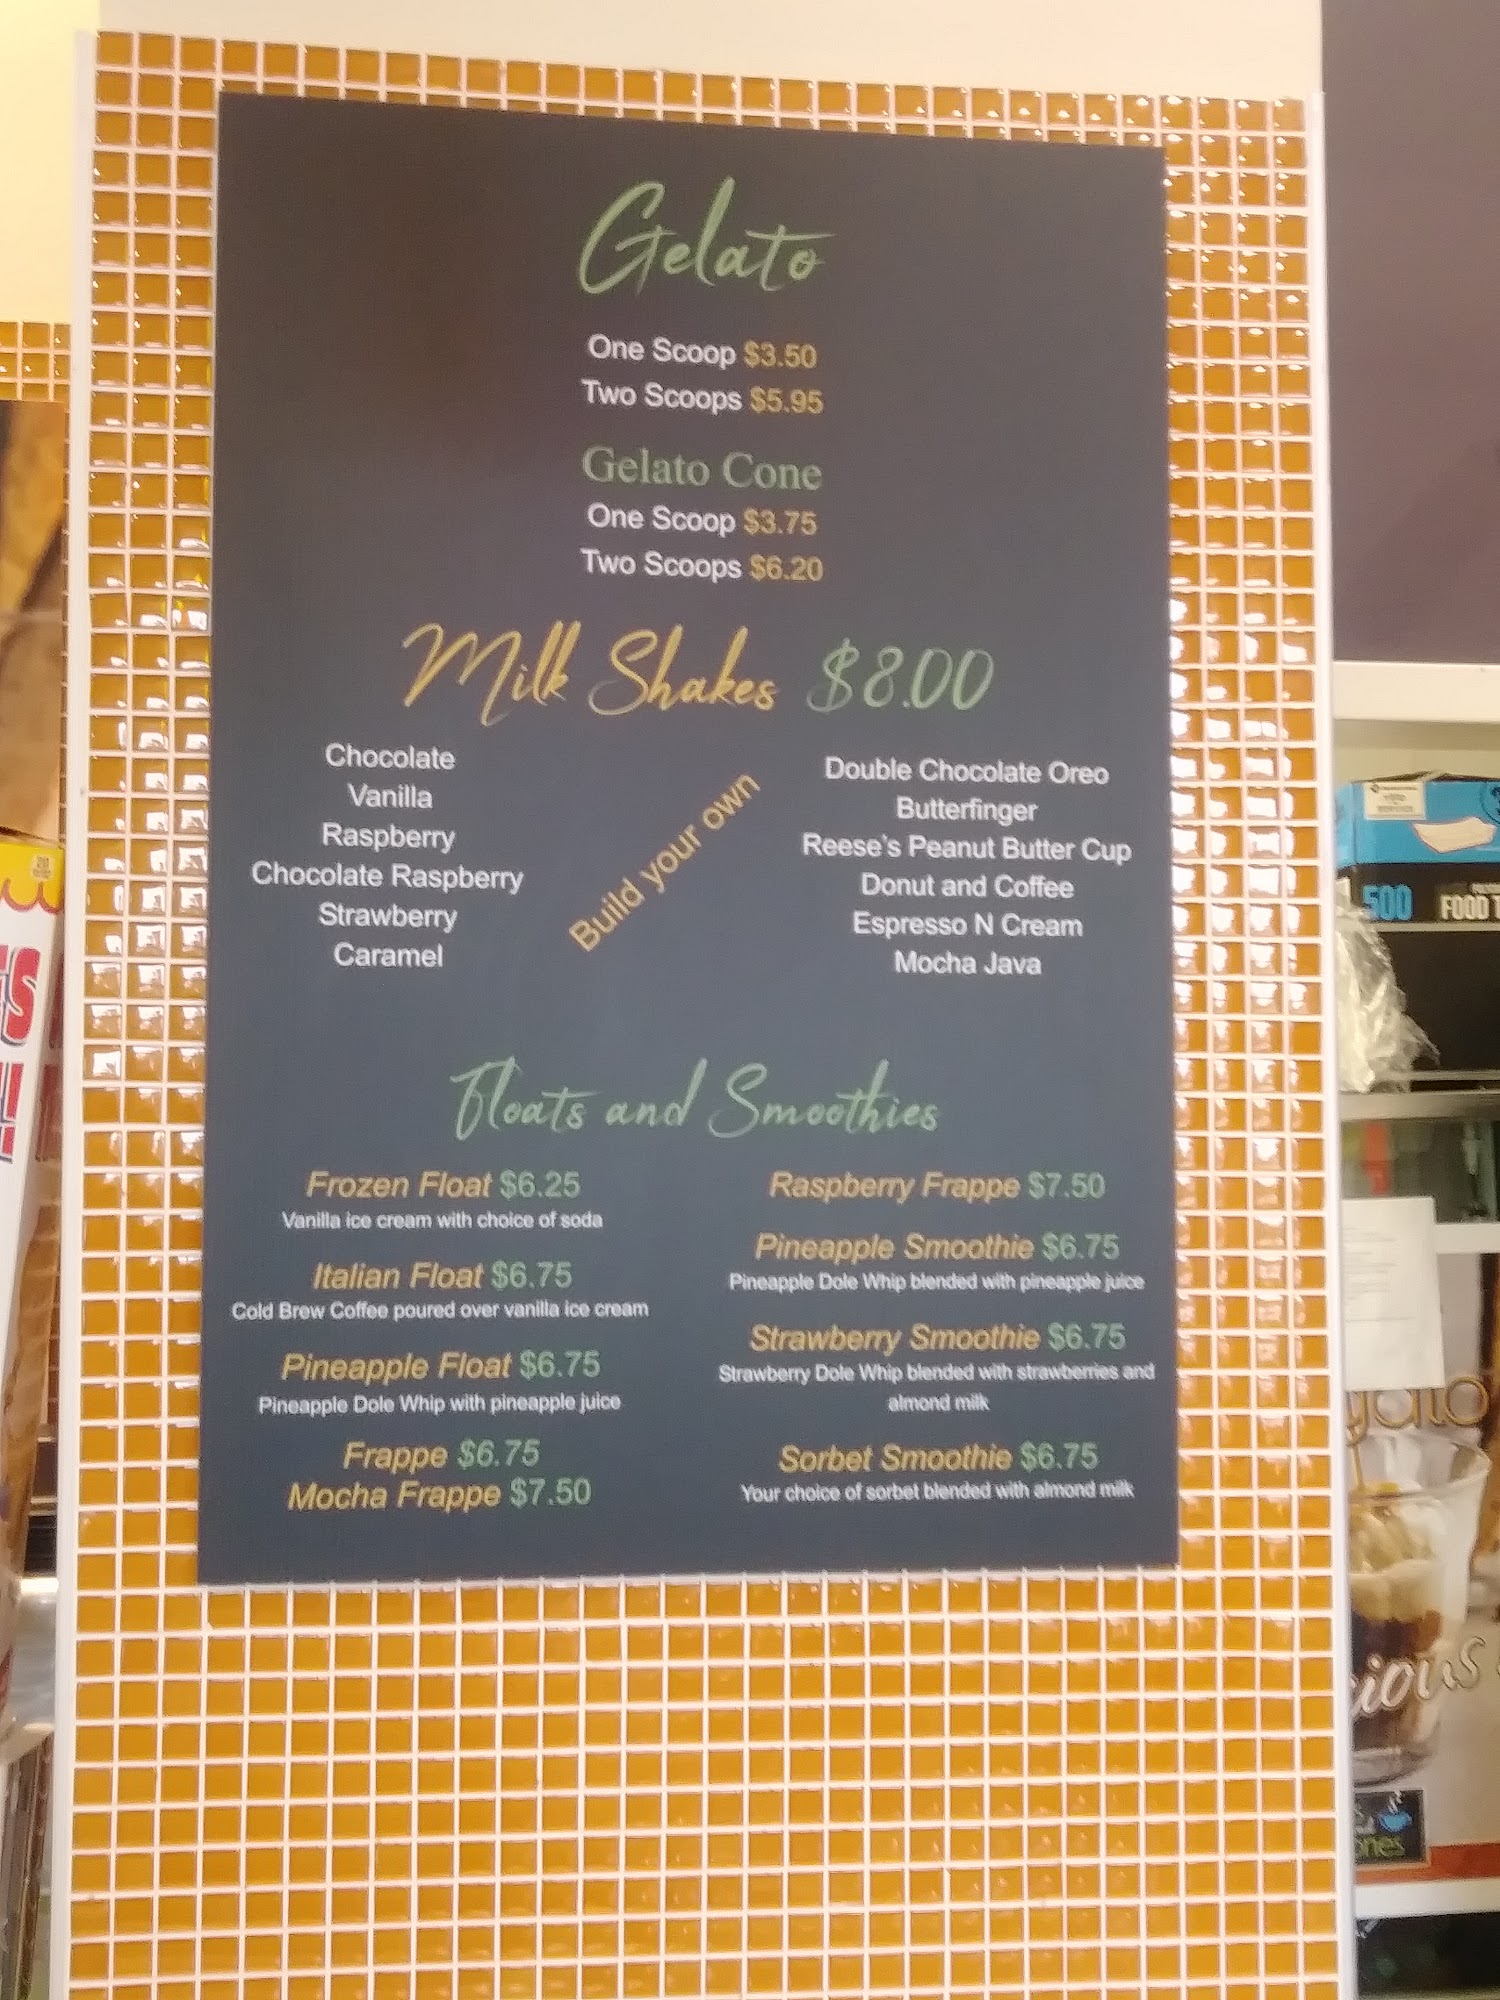 Gelato
One Scoop $3.50
Two Scoops $5.95
Gelato Cone
One Scoop $3.75
Two Scoops $6.20
Milk Shakes $8.00
Chocolate
Vanilla
Raspberry
Chocolate Raspberry
Strawberry
Caramel
Build your own
Double Chocolate Oreo
Butterfinger
Reese's Peanut Butter Cup
Donut and Coffee
Espresso N Cream
Mocha Java
Floats and Smoothies
Frozen Float $6.25
Vanilla ice cream with choice of soda
Italian Float $6.75
Cold Brew Coffee poured over vanilla ice cream
Pineapple Float $6.75
Pineapple Dole Whip with pineapple juice
Frappe $6.75
Mocha Frappe $7.50
Raspberry Frappe $7.50
Pineapple Smoothie $6.75
Pineapple Dole Whip blended with pineapple juice
Strawberry Smoothie $6.75
Strawberry Dole Whip blended with strawberries and
almond milk
Sorbet Smoothie $6.75
Your choice of sorbet blended with almond milk
500 FOOD T